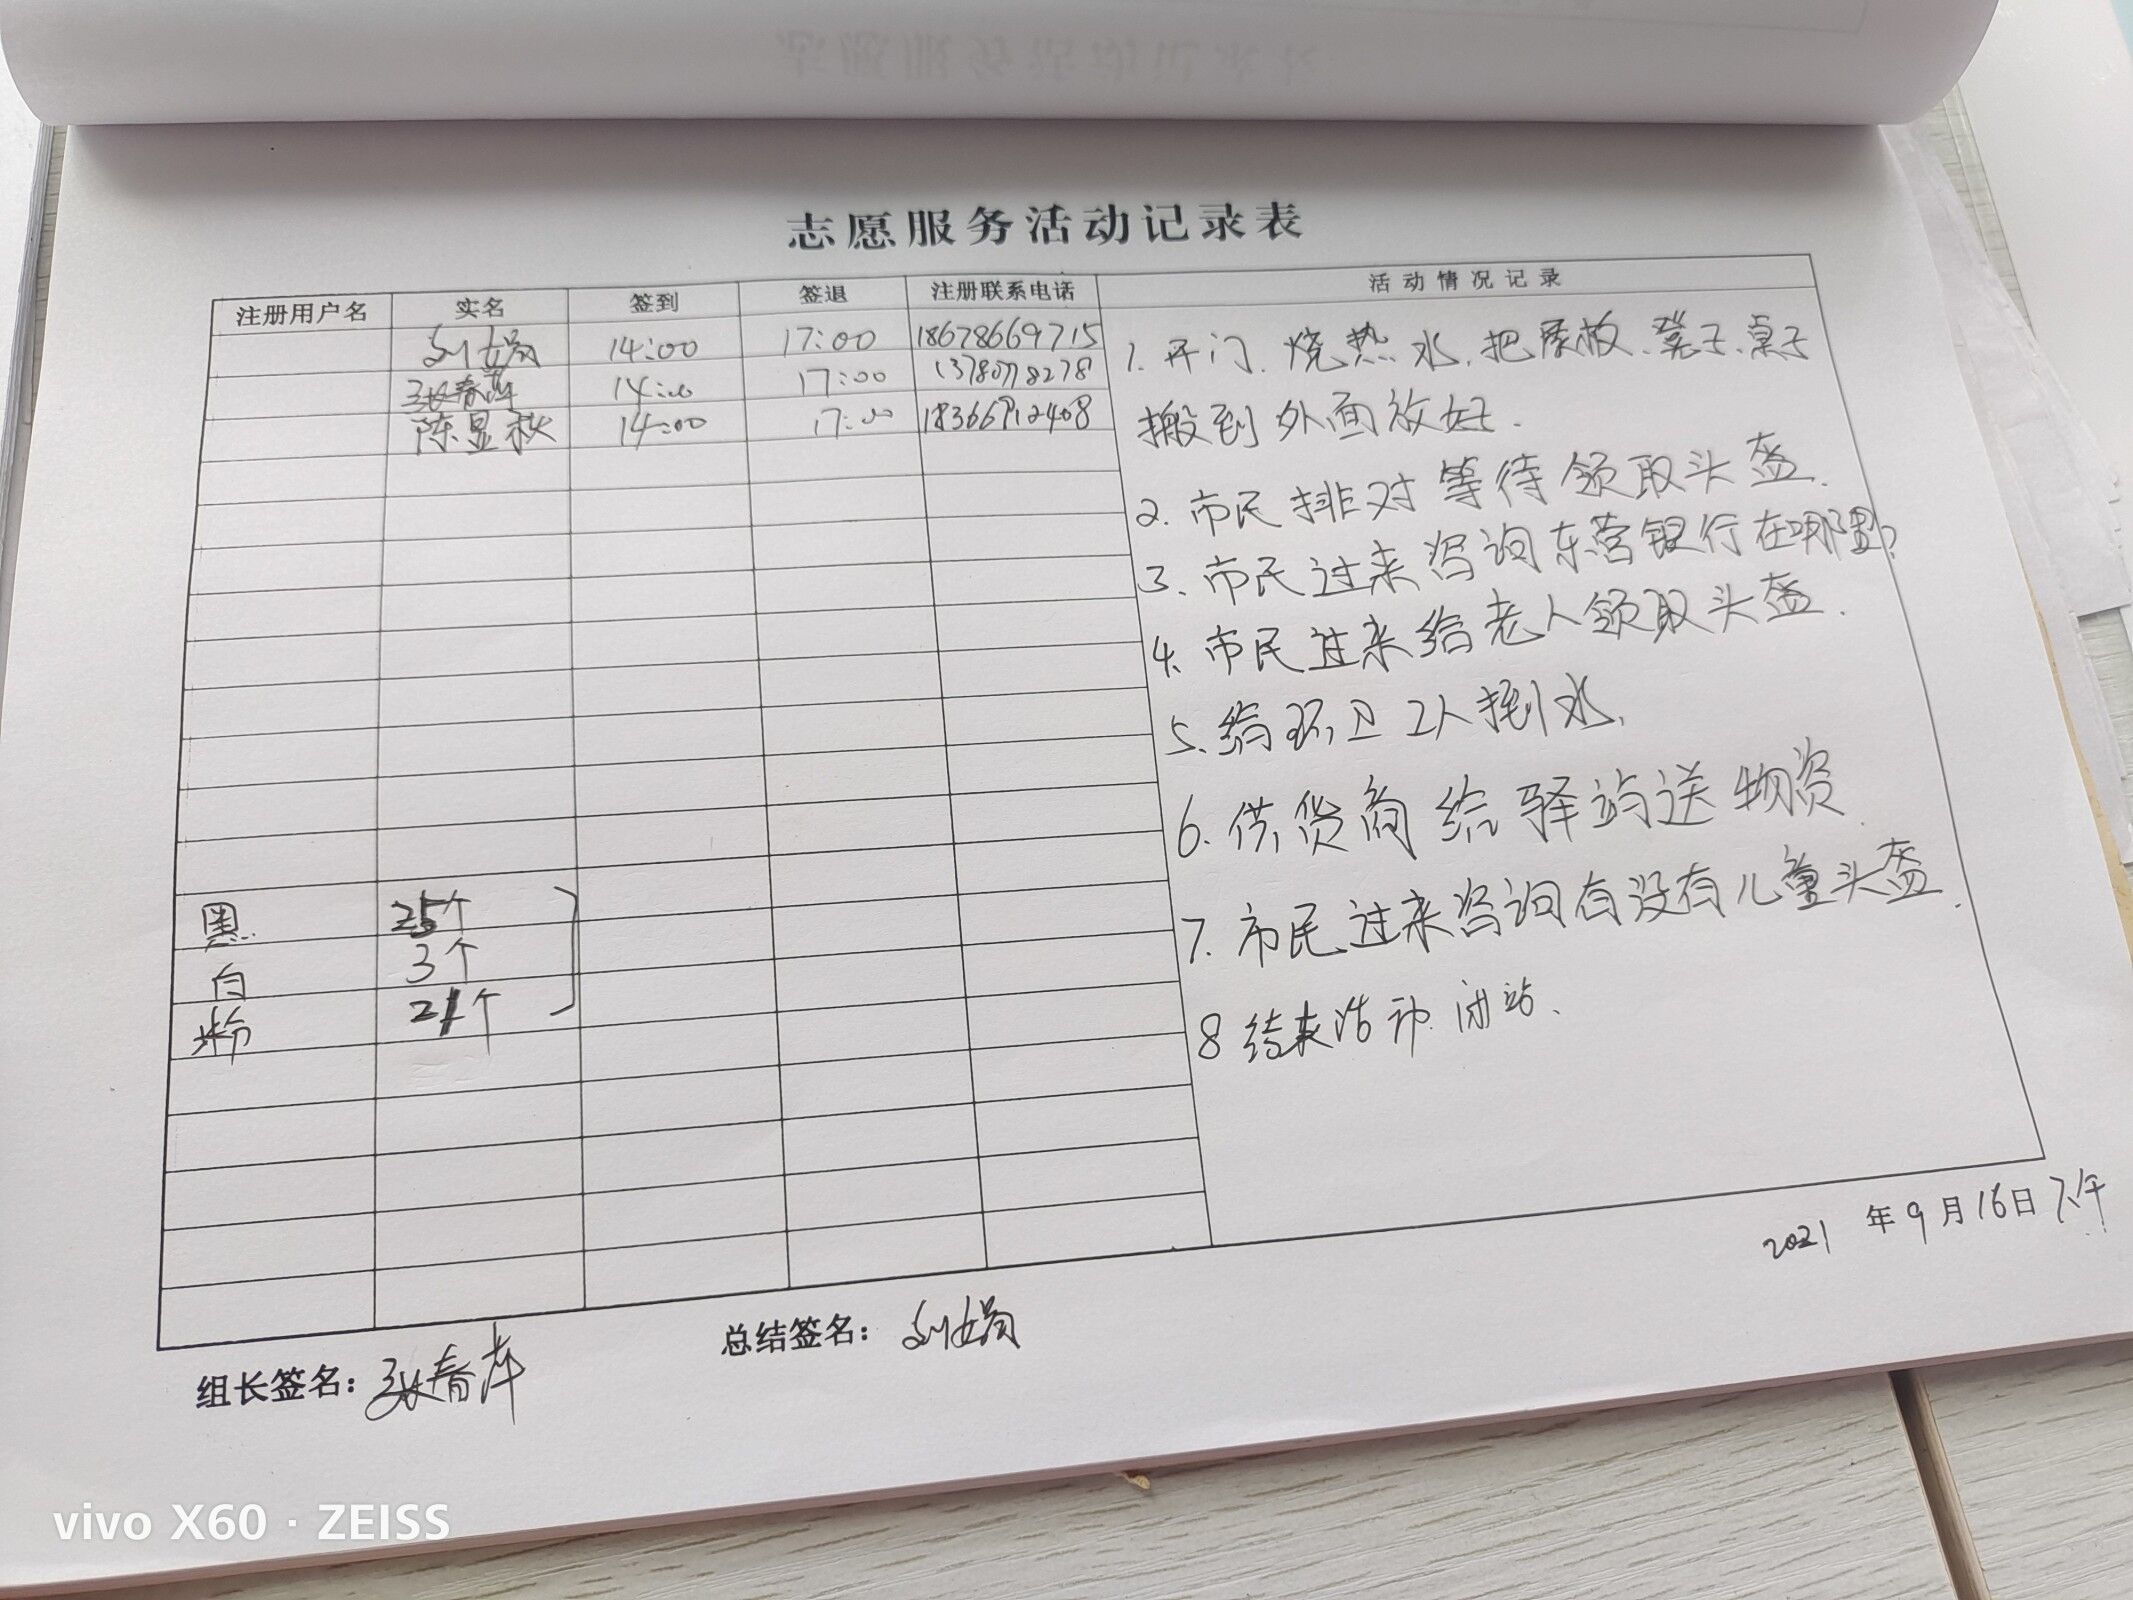 志愿服务活动记录表
注册用户名 实名 签到 签退 注册联系电话 活动情况记录
刘娟 14:00 17:00 18678669715
张春萍 14:00 17:00
陈显秋 14:00 17:00 18366912408
1. 开门. 烧热水. 把展板、凳子、桌子
搬到外面放好.
2. 市民排对等待领取头盔.
3、市民过来咨询东营银行在哪里?
4、市民过来给老人领取头盔.
5、给环卫工人接水.
6. 供货商给驿站送物资.
7. 市民过来咨询有没有儿童头盔.
8 结束活动 闭站、
黑 25个
白 3个
粉 21个
2021 年 9 月 16 日 下午
组长签名: 张春萍
总结签名: 刘娟
vivo X60 · ZEISS